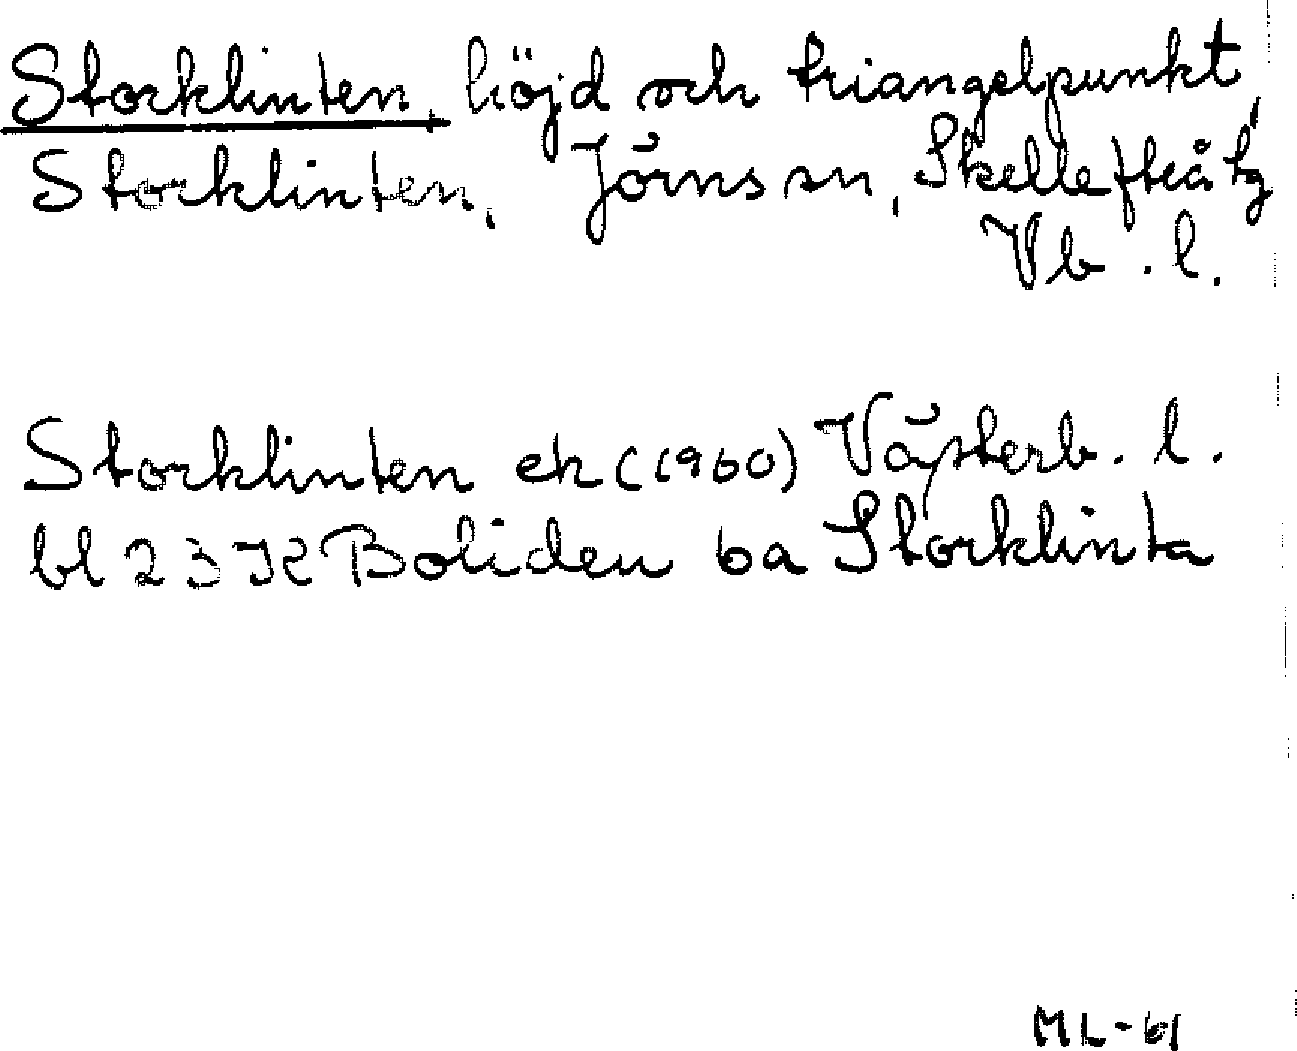 Storklinten, höjd och triangelpunkt,
Storklinten, Jörns sn, Skellefteå tg
Vb. l.
Storklinten ek (1960) Västerb. l.
bl 23 K Boliden 6a Storklinta
ML-61